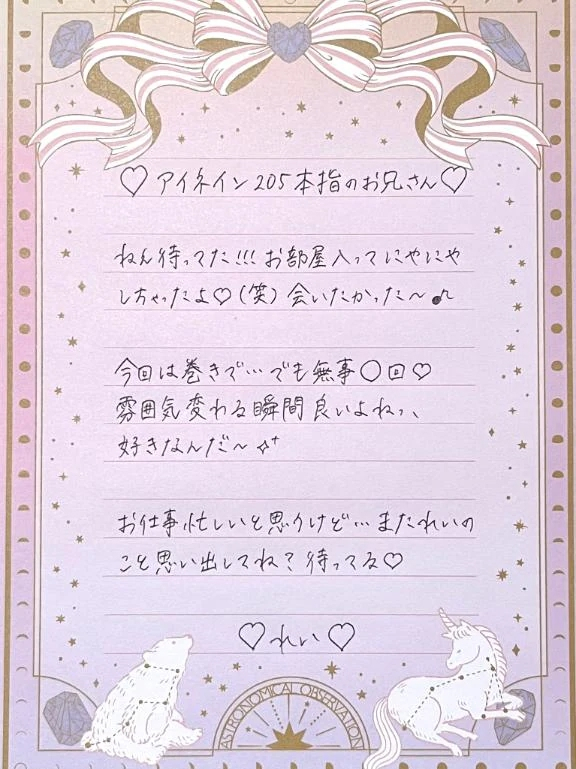 ♡アイネイン205本指のお兄さん♡
ねん待ってた!!!お部屋入ってにやにや
しちゃったよ♡(笑)会いたかった〜♪
今回は巻きで…でも無事〇回♡
雰囲気変わる瞬間良いよねっ、
好きなんだ〜✧⁺
お仕事忙しいと思うけど…またれいの
こと思い出してね?待ってる♡
♡れい♡
ASTRONOMICAL OBSERVATION